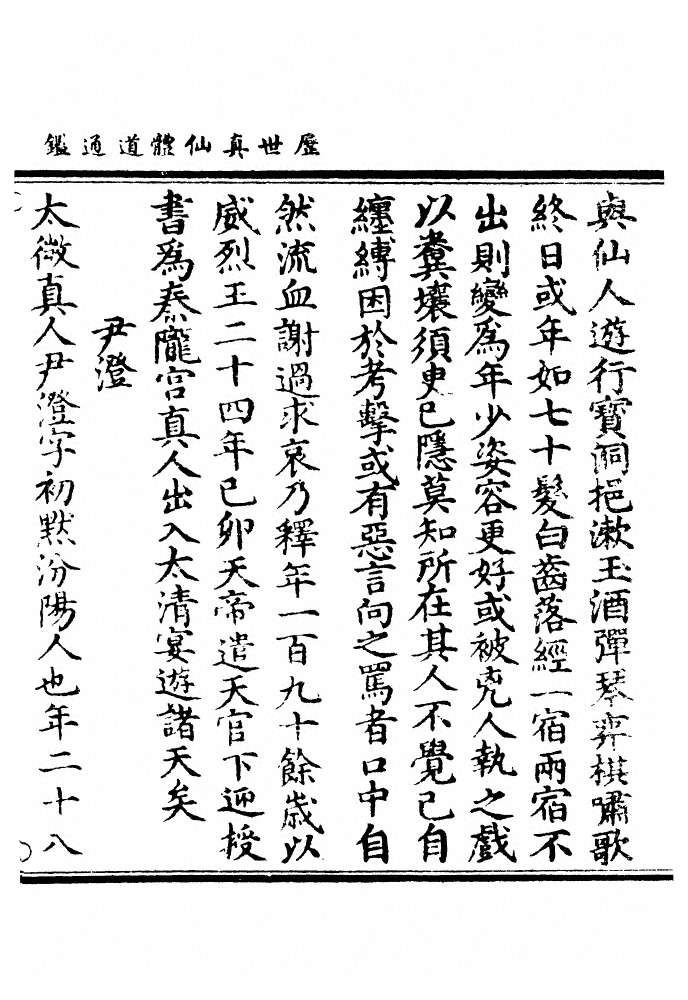 歷世真仙體道通鑑
與仙人遊行寶洞挹漱玉酒彈琴弈棋嘯歌
終日或年如七十髮白齒落經一宿兩宿不
出則變為年少姿容更好或被兇人執之戲
以糞壤須臾已隱莫知所在其人不覺已自
纏縛困於考擊或有惡言向之罵者口中自
然流血謝過求哀乃釋年一百九十餘歲以
威烈王二十四年己卯天帝遣天官下迎授
書為秦隴宮真人出入太清宴遊諸天矣
尹澄
太微真人尹澄字初默汾陽人也年二十八